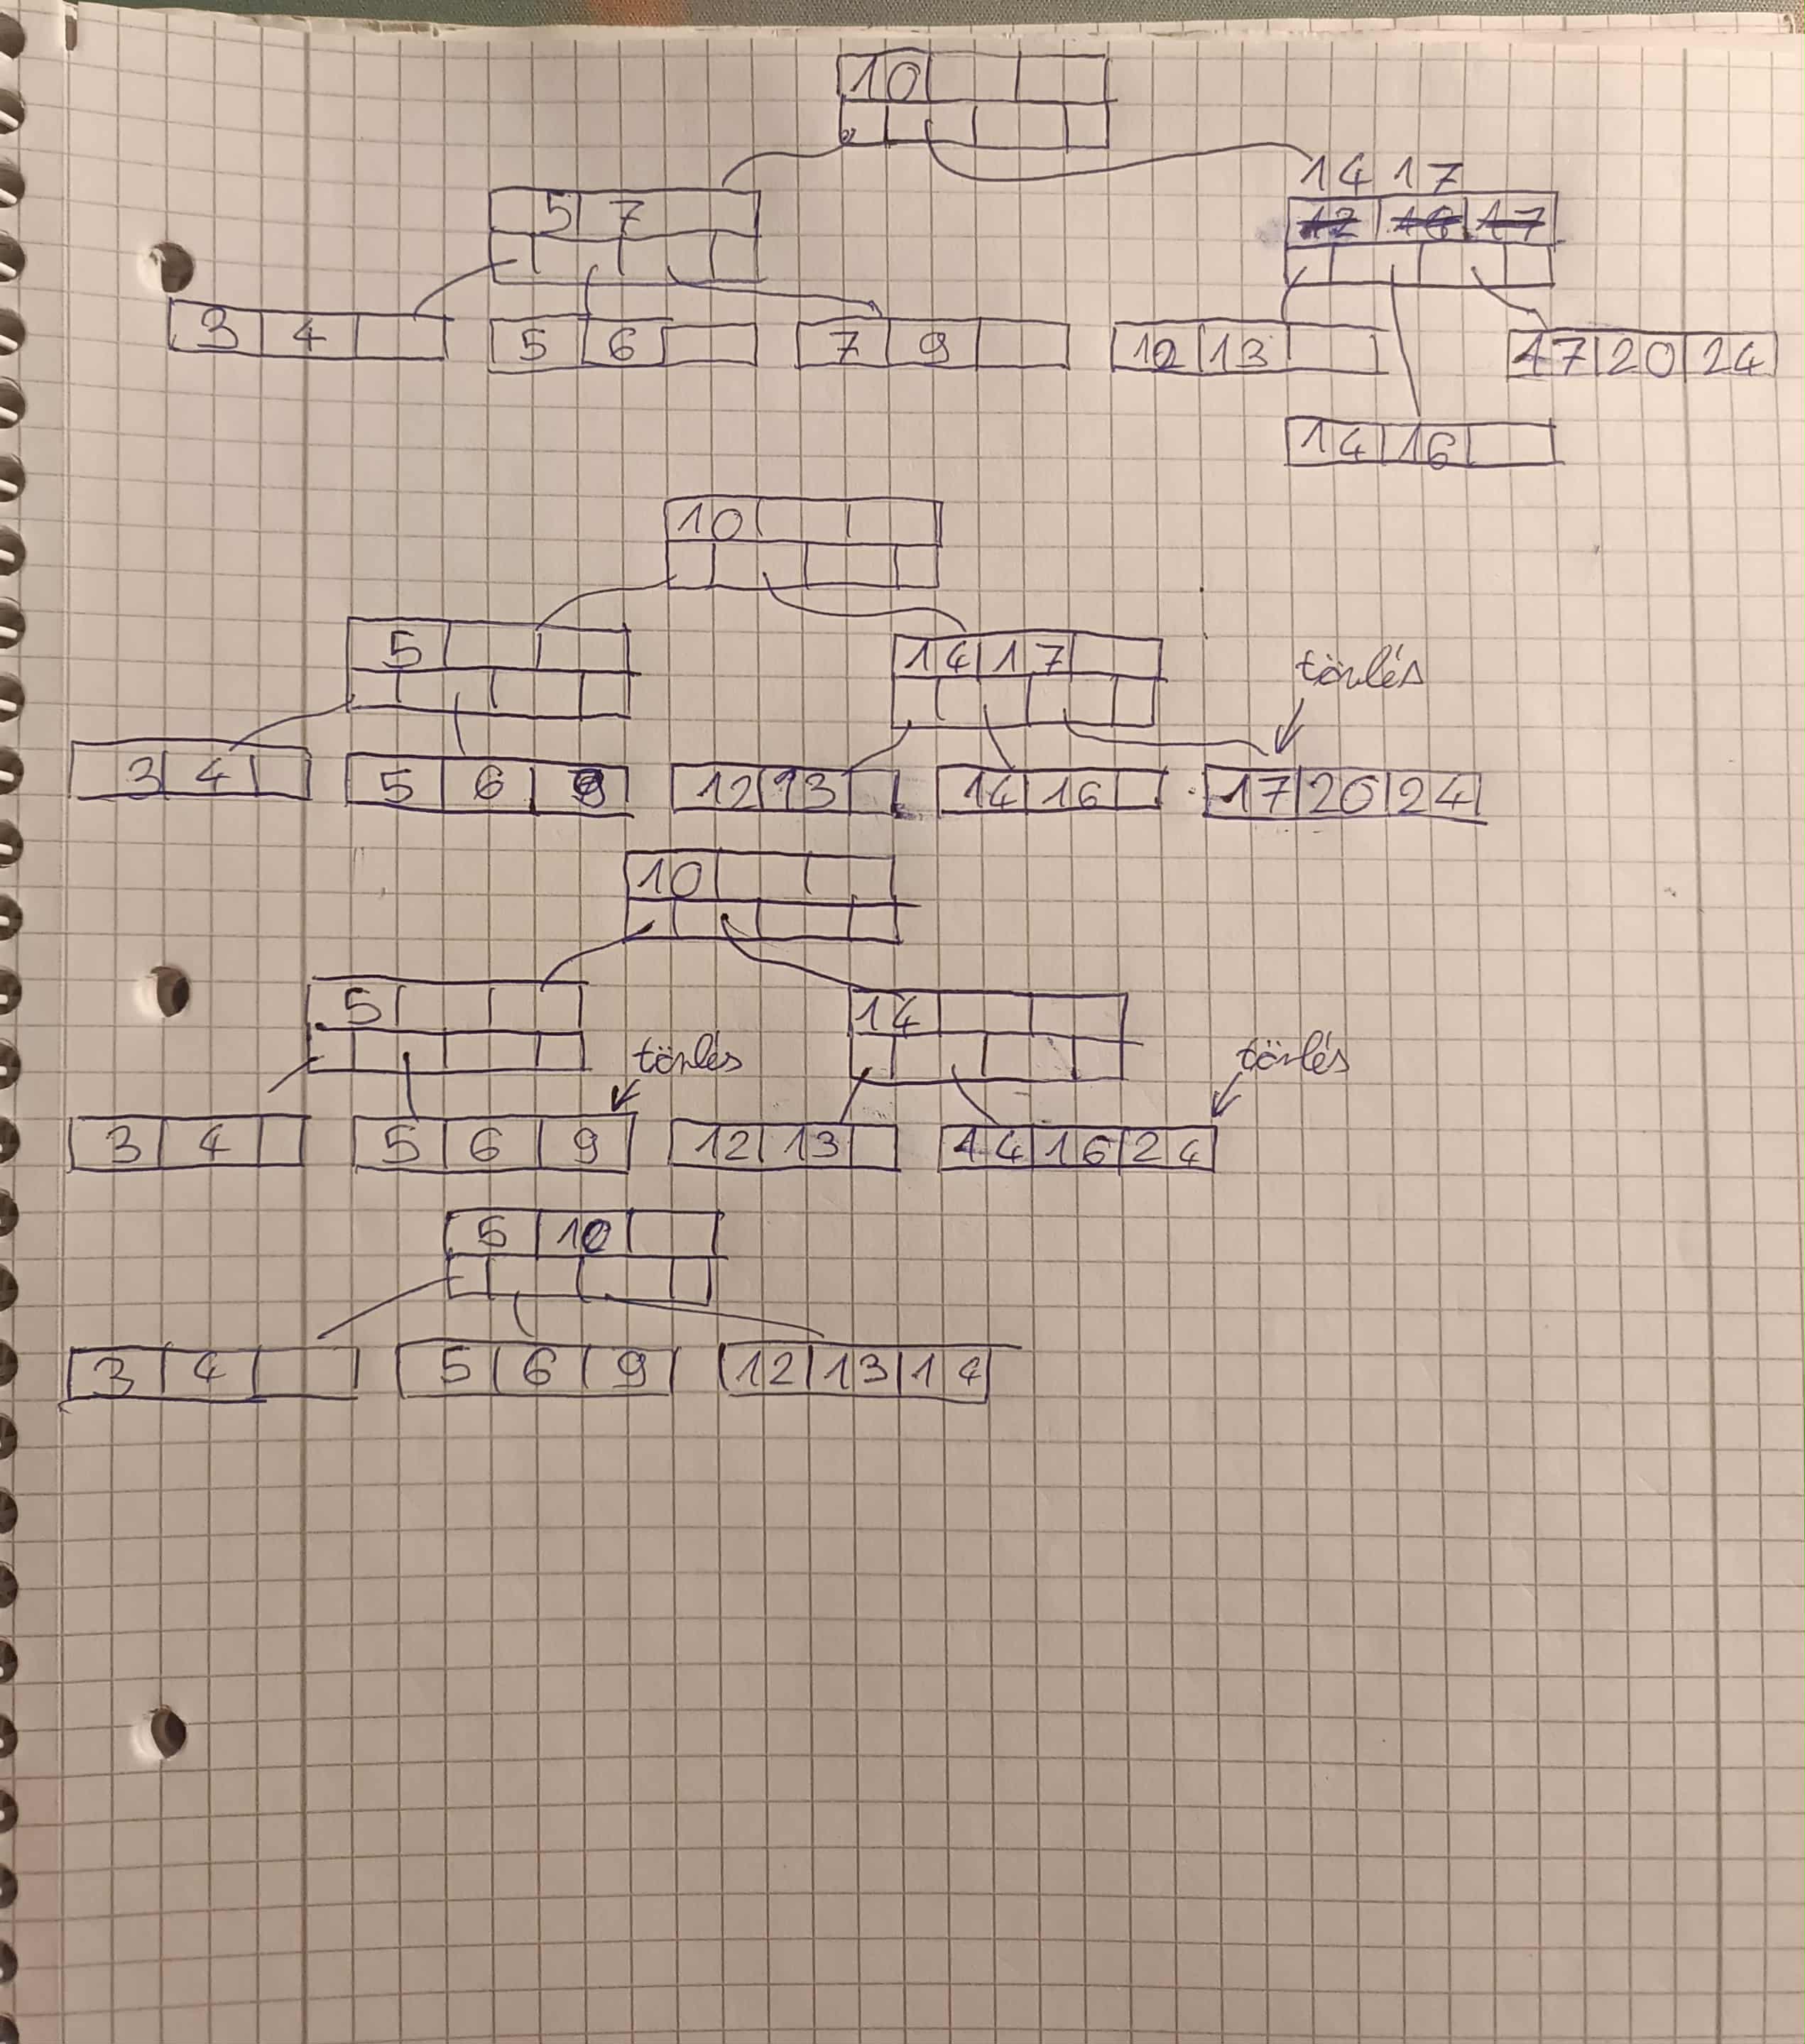 10
14 17
5 7
12 16 17
3 4
5 6
7 9
12 13
17 20 24
14 16
10
5
14 17
törlés
3 4
5 6 9
12 13
14 16
17 20 24
10
5
14
törlés
törlés
3 4
5 6 9
12 13
14 16 24
5 10
3 4
5 6 9
12 13 14